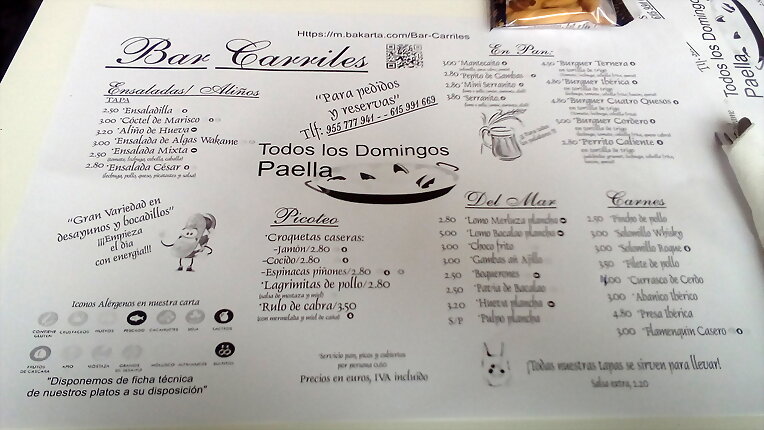 Https://m.bakarta.com/Bar-Carriles
Bar Carriles
Ensaladas/ Aliños
TAPA
2.50 *Ensaladilla
3.00 *Cóctel de Marisco
3.20 *Aliño de Hueva
3.00 *Ensalada de Algas Wakame
2.50 *Ensalada Mixta
2.80 *Ensalada César
(lechuga, pollo, queso, picatostes y salsa)
"Para pedidos
y reservas"
Tlf: 955 777 941 - - 615 991 669
Todos los Domingos
Paella
En Pan:
3.00 *Mantecaito
2.80 *Pepito de Gambas
2.80 *Mini Serranito
3.80 *Serranito
4.50 *Burguer Ternera
en tortilla de trigo
4.80 *Burguer Ibérica
en tortilla de trigo
4.80 *Burguer Cuatro Quesos
en tortilla de trigo
5.00 *Burguer Cordero
en tortilla de trigo
2.80 *Perrito Caliente
"Gran Variedad en
desayunos y bocadillos"
¡¡¡Empieza
el día
con energía!!!
Picoteo
*Croquetas caseras:
-Jamón/2.80
-Cocido/2.80
-Espinacas piñones/2.80
*Lagrimitas de pollo/2.80
(salsa de mostaza y miel)
*Rulo de cabra/3.50
(con mermelada y miel de caña)
Del Mar
2.80 *Lomo Merluza plancha
5.00 *Lomo Bacalao plancha
3.00 *Choco frito
3.00 *Gambas en Ajillo
2.50 *Boquerones
2.50 *Pavía de Bacalao
3.20 *Hueva plancha
S/P *Pulpo plancha
Carnes
2.50 *Pincho de pollo
3.00 *Solomillo Whisky
3.00 *Solomillo Roque
3.50 *Filete de pollo
4.00 *Currasco de Cerdo
3.00 *Abanico Ibérico
4.80 *Presa Ibérica
3.00 *Flamenquín Casero
Iconos Alérgenos en nuestra carta
CONTIENE GLUTEN
CRUSTÁCEOS
HUEVOS
PESCADO
CACAHUETES
SOJA
LÁCTEOS
FRUTOS DE CÁSCARA
APIO
MOSTAZA
MOLUSCO
ALTRAMUCES
SULFITOS
"Disponemos de ficha técnica
de nuestros platos a su disposición"
*Servicio pan, picos y cubiertos
por persona 0.60
Precios en euros, IVA incluido
¡Todas nuestras tapas se sirven para llevar!
Salsa extra, 1.20
Todos los Domingos
Paella